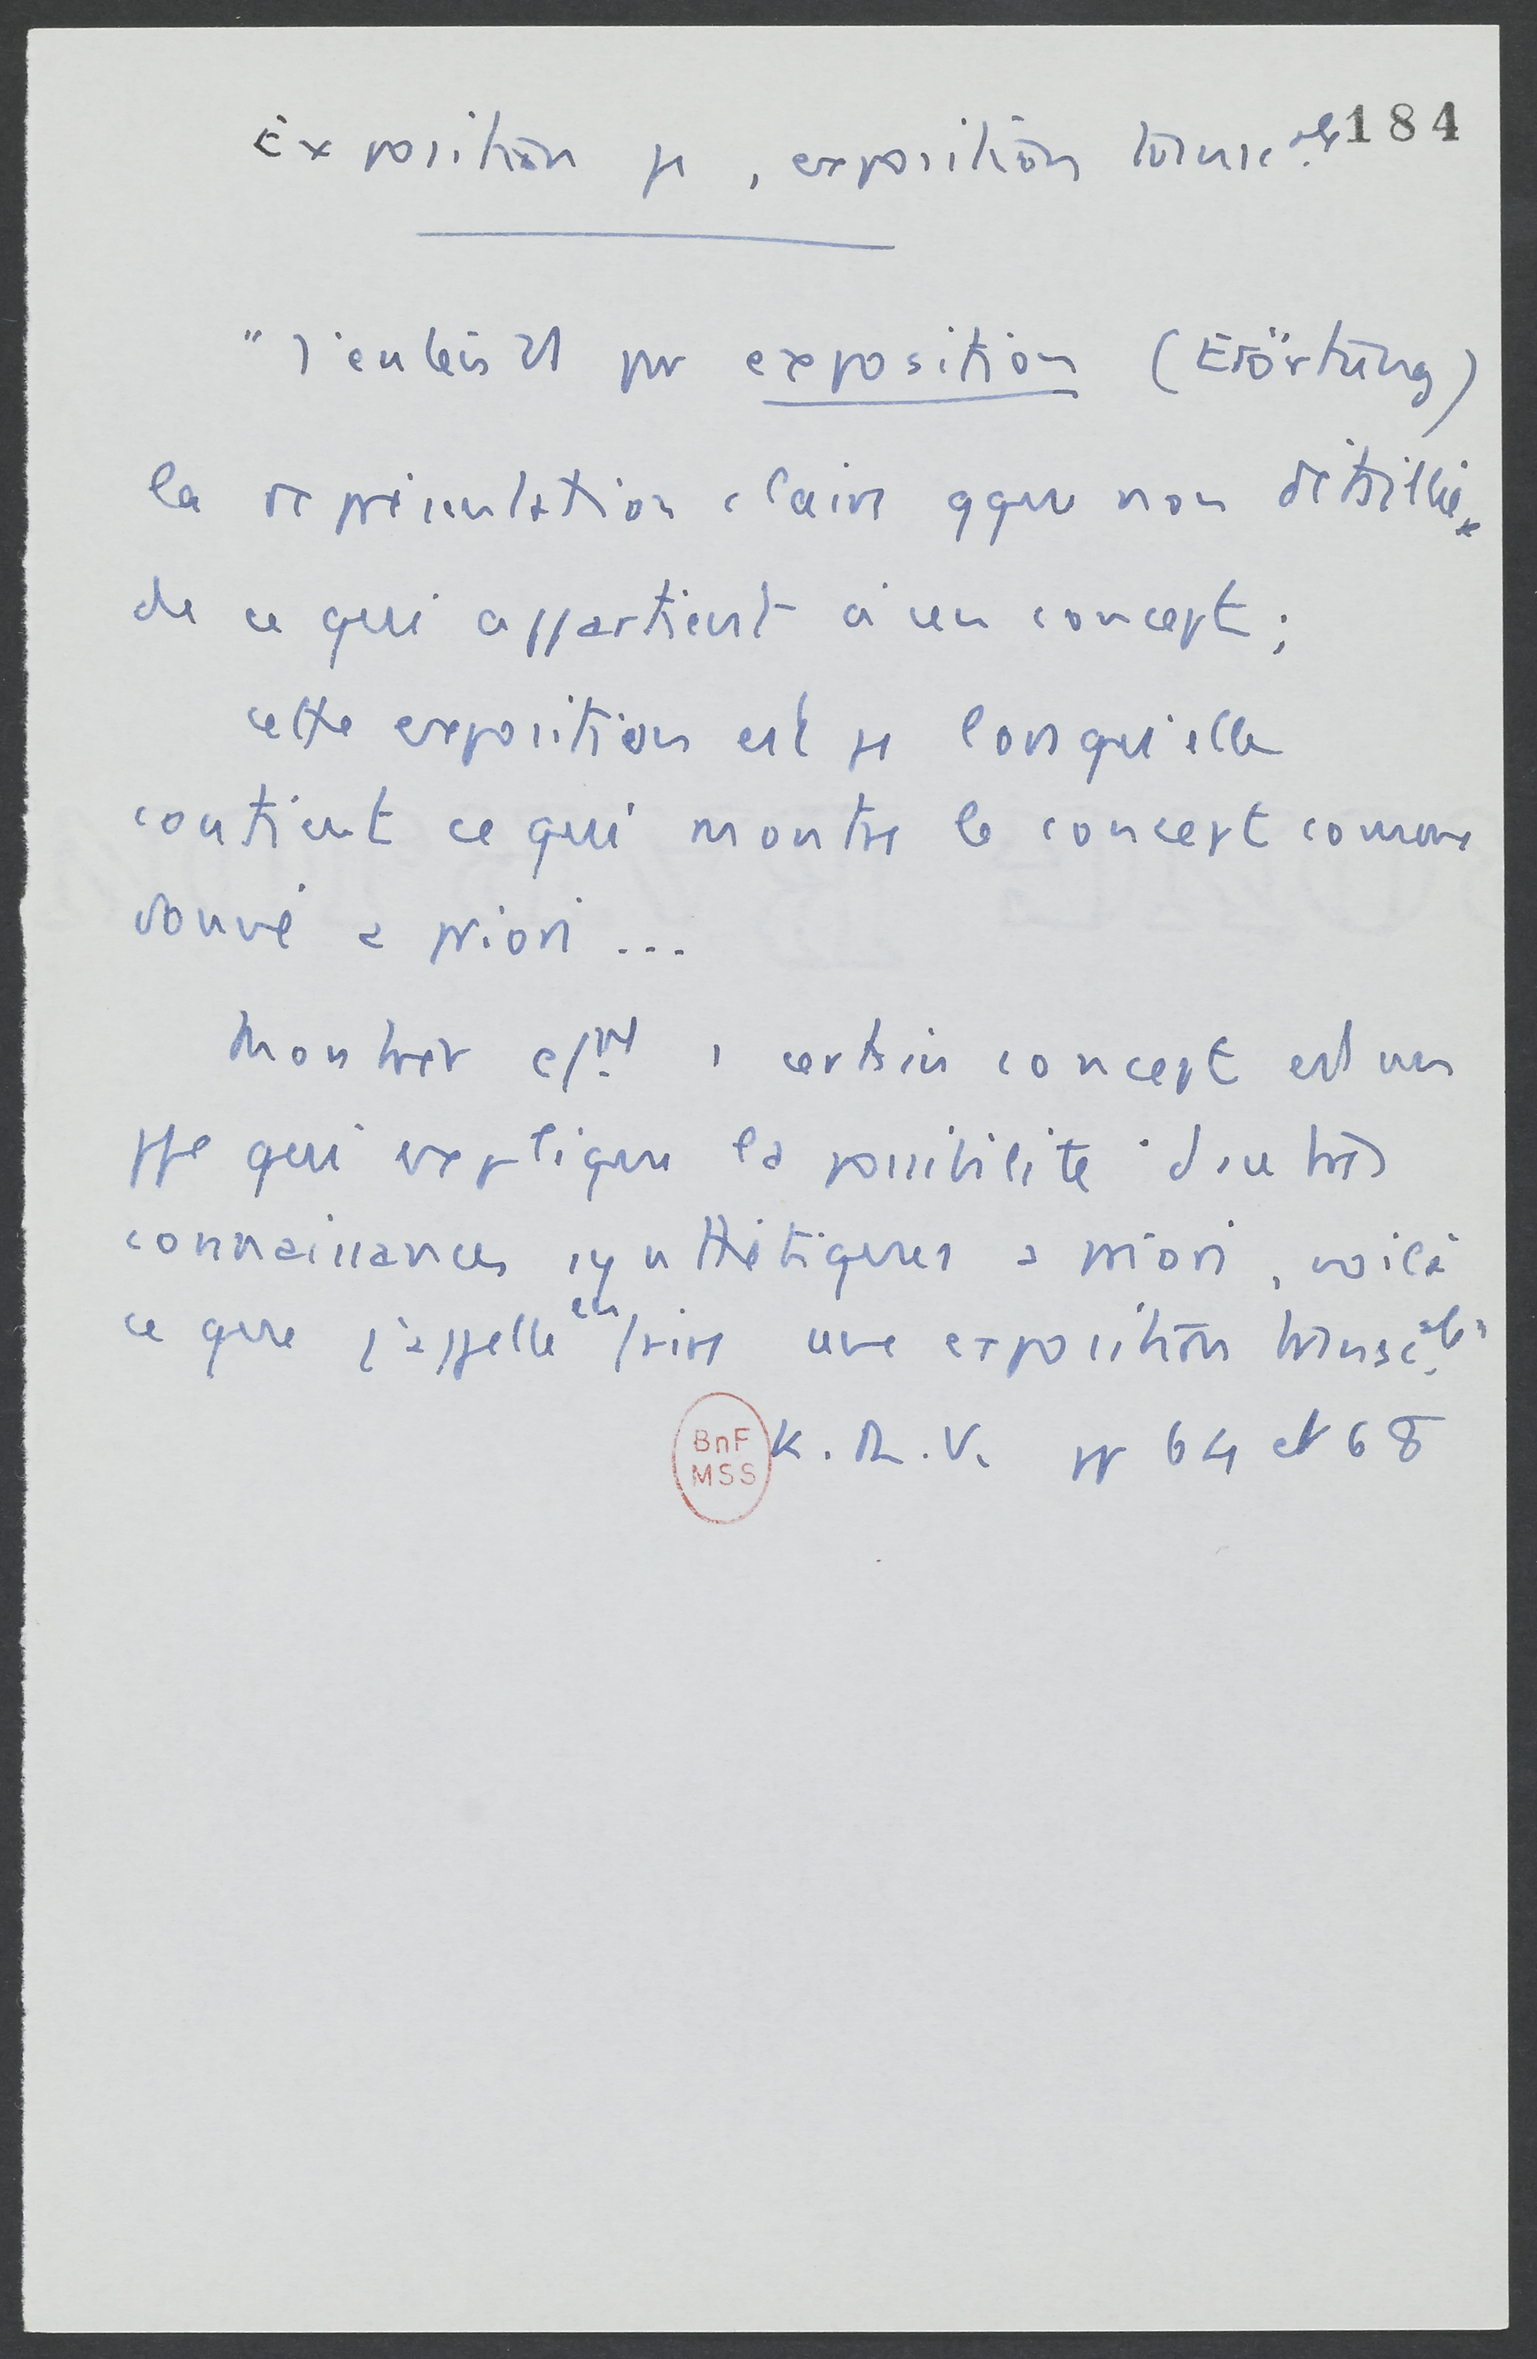 184
Exposition μ, exposition transc.ale
"J'entends pr exposition (Erörtung)
la représentation claire qque non détaillée
de ce qui appartient à un concept ;
cette exposition est μ lorsqu'elle
contient ce qui montre le concept comme
donné a priori ...
Montrer certain concept est un
ppe qui explique la possibilité d'autres
connaissances synthétiques a priori, voilà
ce que j'appelle en faire une exposition transc.ale"
K.R.V. pp 64 et 68
BnF
MSS